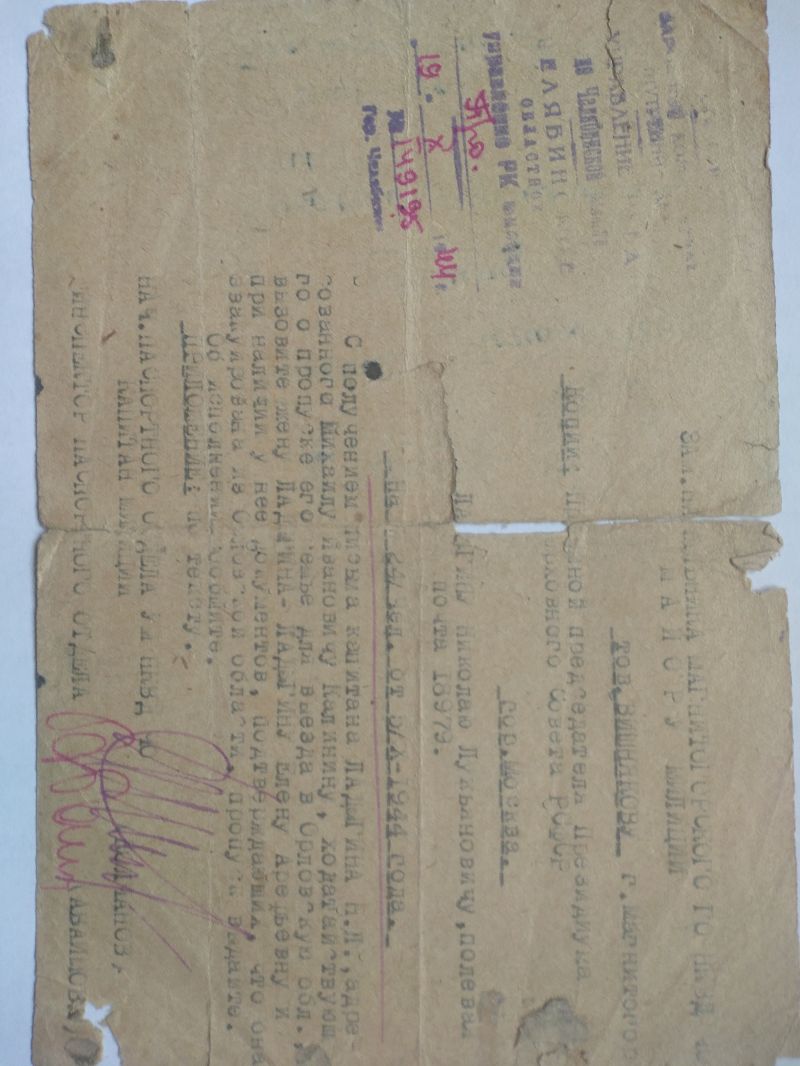 УПРАВЛЕНИЕ
по Челябинской
ЧЕЛЯБИНСКОЙ
ОБЛАСТНОЕ
Управление РК милиции
19. X 1944 г.
№ 149195
Гор. Челябинск
ЗАМ.НАЧАЛЬНИКА МАГНИТОГОРСКОГО ГО НКВД
МАЙОРУ МИЛИЦИИ
ТОВ.ВИШНЯКОВУ г. Магнитогорс
КОПИЯ: председателя Президиума
Верховного Совета РСФСР
гор.Москва.
ЛАДЫГИНУ Николаю Лукьяновичу, полевая
почта 18979.
На от -1944 года.
С получением письма капитана ЛАДЫГИНА Н.Л., адре-
сованного Михаилу Ивановичу Калинину, ходатайствующ
го о пропуске его семье для выезда в Орловскую обл.,
вызовите жену ЛАДЫГИНА- ЛАДЫГИНУ Елену Арефьевну и
при наличии у нее документов, подтверждающих, что она
эвакуирована из Орловской области, пропуск выдайте.
Об исполнении сообщите.
ПРИЛОЖЕНИЕ: по тексту.
НАЧ.ПАСПОРТНОГО ОТДЕЛА УМ НКВД ЧО
КАПИТАН МИЛИЦИИ
ИНСПЕКТОР ПАСПОРТНОГО ОТДЕЛА